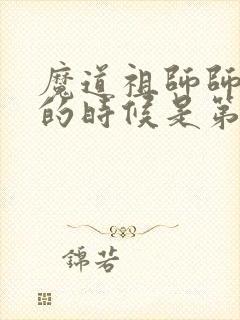 魔道祖師師
的時候是第
錦若